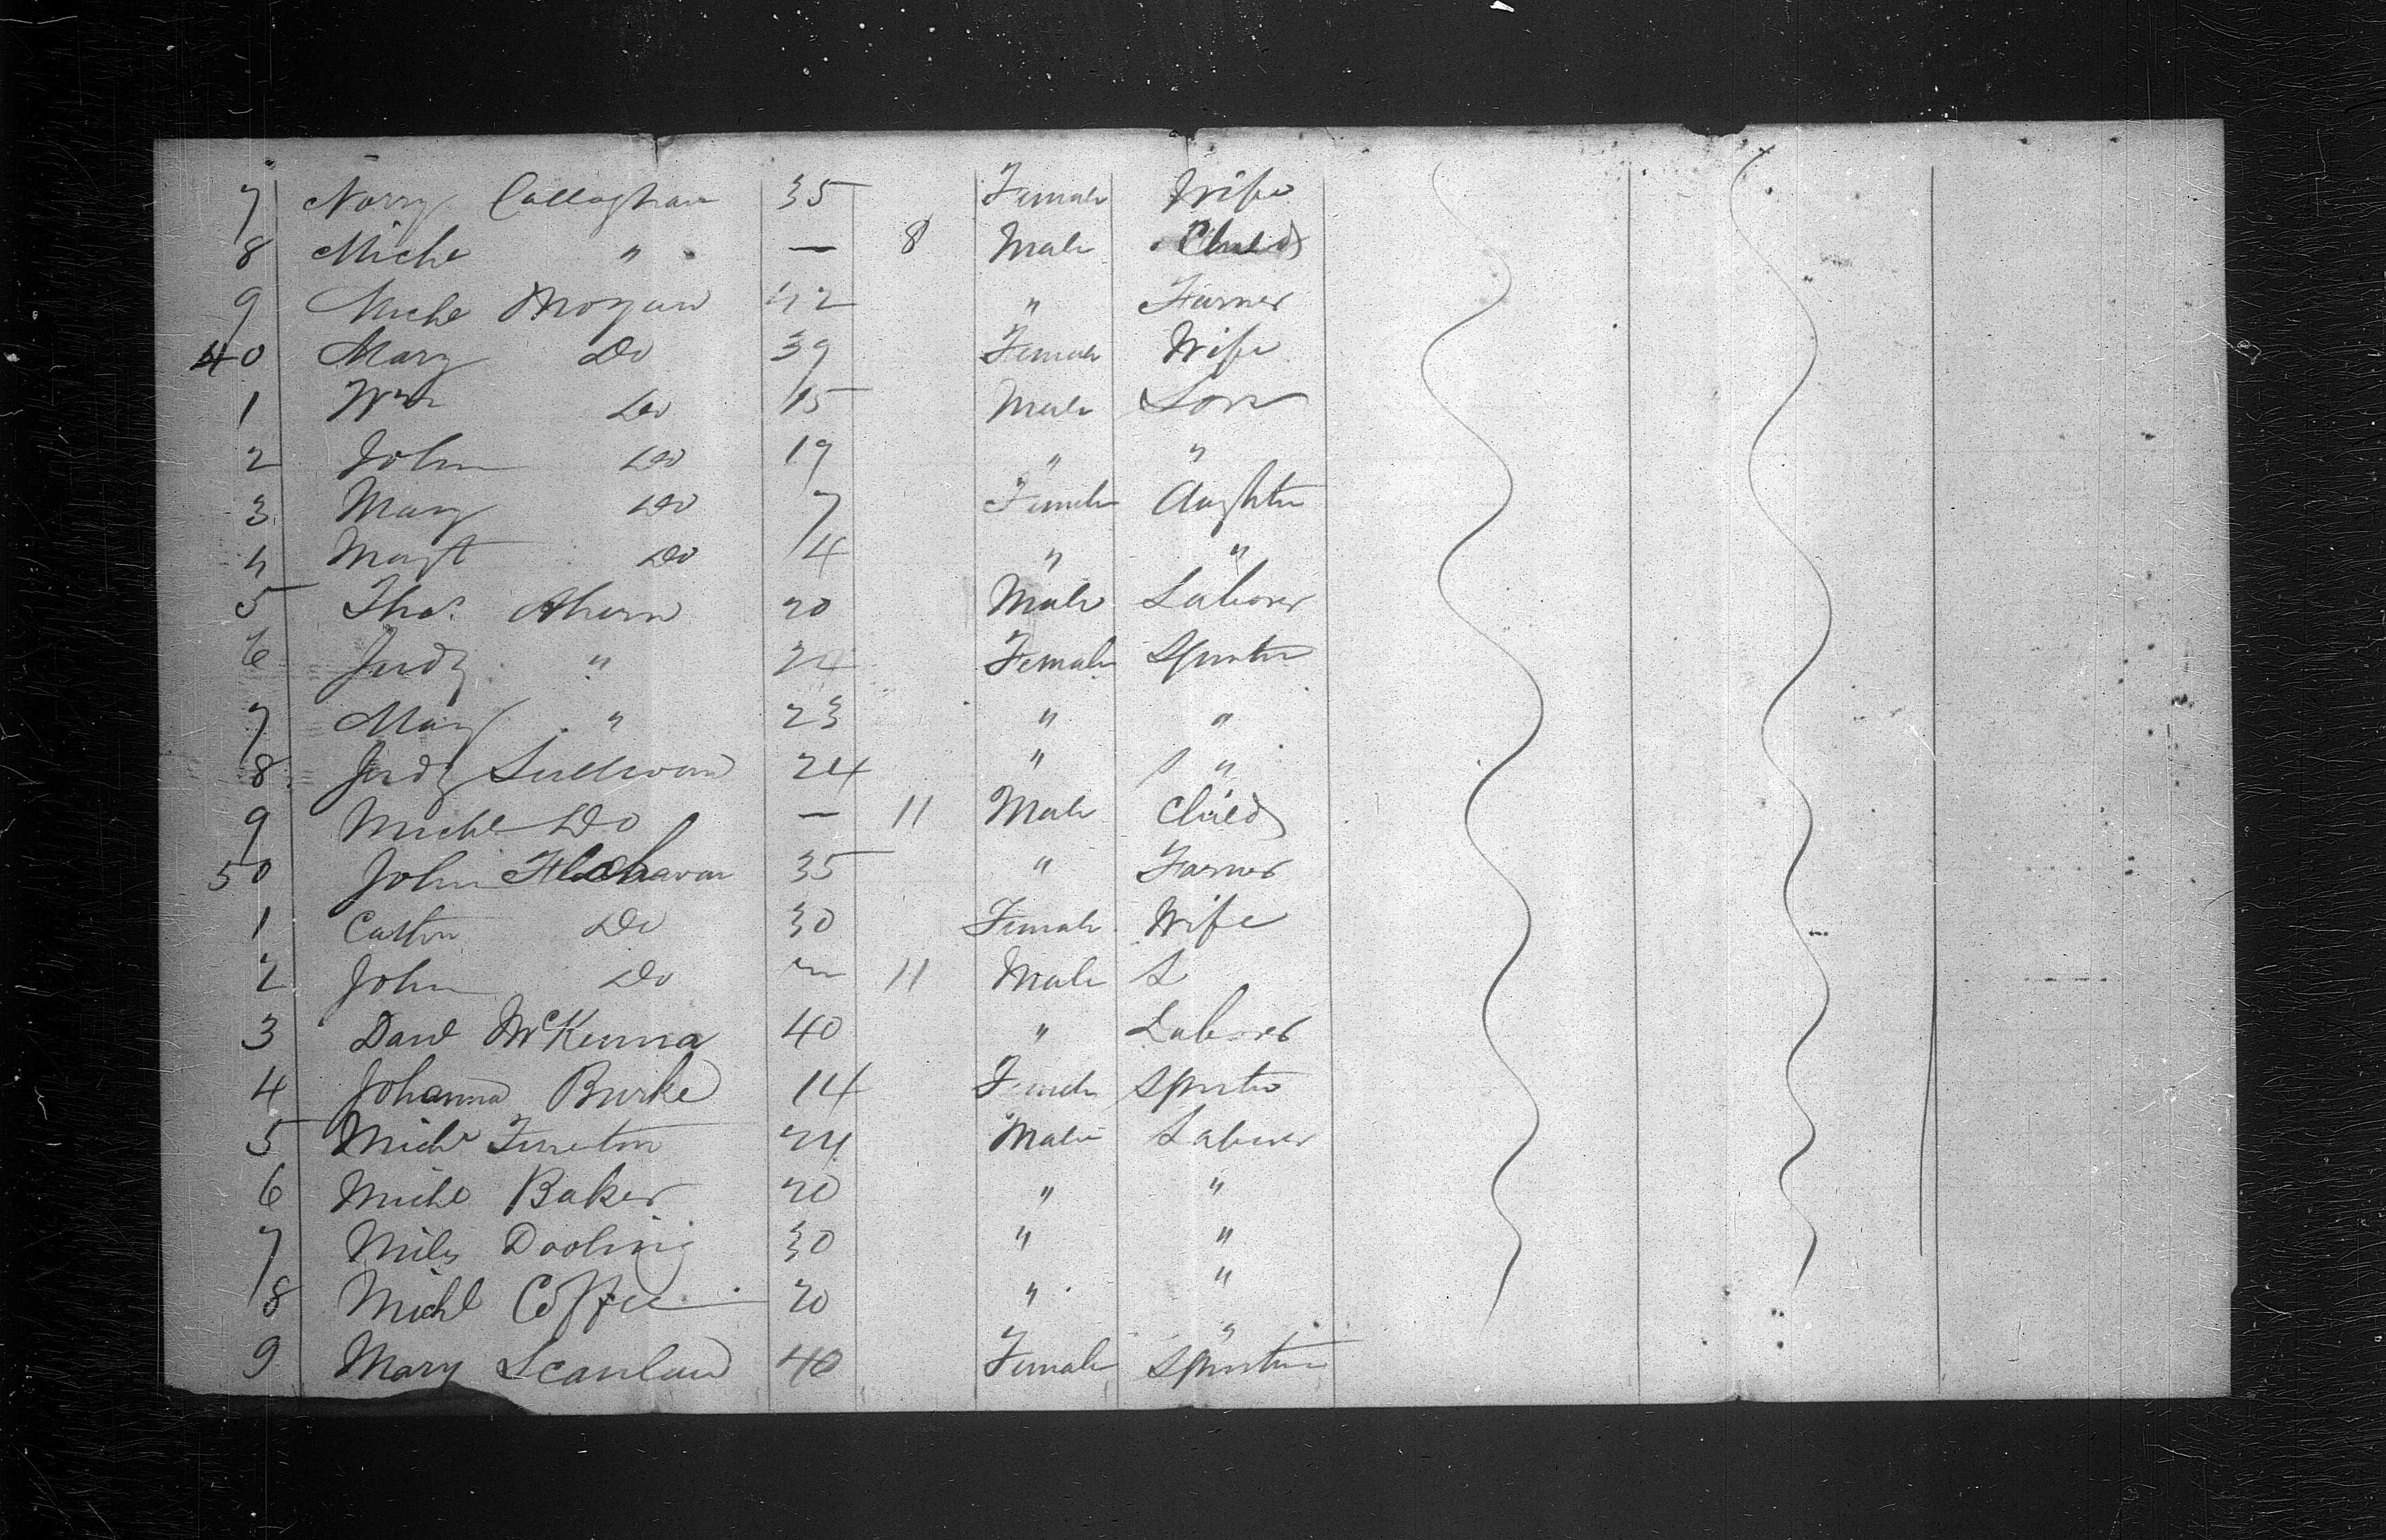 7 Norry Callaghan 35 Female Wife
8 Michl " — 8 Male Child
9 Michl Morgan 42 " Farmer
40 Mary Do 39 Female Wife
1 Wm Do 15 Male Son
2 John Do 19 " "
3 Mary Do 7 Female daughter
4 Margt Do 4 " "
5 Thos. Ahern 20 Male Laborer
6 Judy " 22 Female Spinster
7 Mary " 23 " "
8 Judy Sullivan 24 " "
9 Michl Do — 11 Male Child
50 John Flahavan 35 " Farmer
1 Cathn Do 30 Female Wife
2 John Do — 11 Male S
3 Danl McKenna 40 " Laborer
4 Johanna Burke 14 Female Spinster
5 Michl 24 Male Laborer
6 Michl Baker 20 " "
7 Miles Dooling 30 " "
8 Michl Coffee 20 " "
9 Mary Scanlan 40 Female Spinster